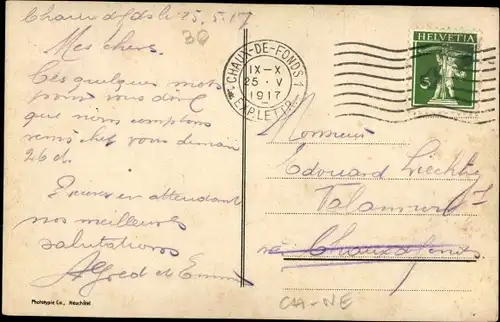 Chaux-d-fds le 25.5.17
30
Mes chers.
Ces quelques mots
pour vous dire
que nous comptons
venir chez vous demain
26 ct.
Recevez en attendant
nos meilleures
salutations
Alfred et Emma
Phototypie Co., Neuchâtel
CHAUX-DE-FONDS 1
IX-X
25·V
1917
EXP. LETTR.
HELVETIA
5
Monsieur
Edouard Liechty
Chaux-de-fonds
CH-NE